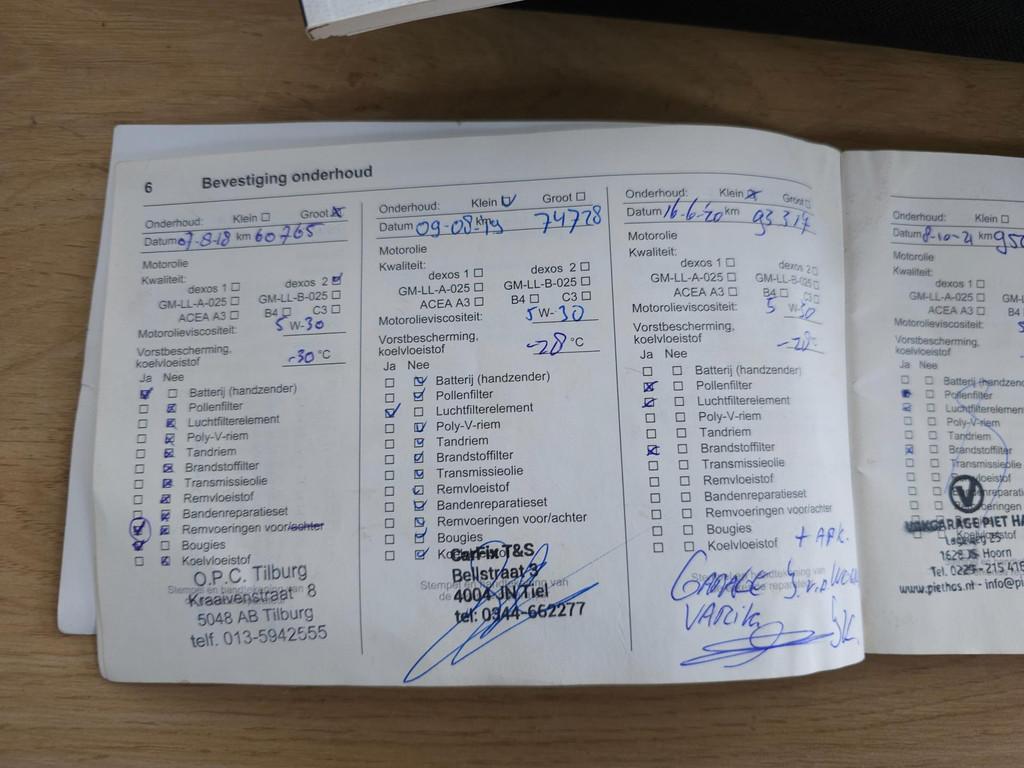 6 Bevestiging onderhoud
Onderhoud: Klein Groot
Datum 07-8-18 km 60765
Motorolie
Kwaliteit:
dexos 1 dexos 2
GM-LL-A-025 GM-LL-B-025
ACEA A3 B4 C3
Motorolieviscositeit: 5 W-30
Vorstbescherming,
koelvloeistof -30 °C
Ja Nee
Batterij (handzender)
Pollenfilter
Luchtfilterelement
Poly-V-riem
Tandriem
Brandstoffilter
Transmissieolie
Remvloeistof
Bandenreparatieset
Remvoeringen voor/achter
Bougies
Koelvloeistof
O.P.C. Tilburg
Kraaivenstraat 8
5048 AB Tilburg
telf. 013-5942555
Onderhoud: Klein Groot
Datum 09-08-19 km 74728
Motorolie
Kwaliteit:
dexos 1 dexos 2
GM-LL-A-025 GM-LL-B-025
ACEA A3 B4 C3
Motorolieviscositeit: 5 W-30
Vorstbescherming,
koelvloeistof -28 °C
Ja Nee
Batterij (handzender)
Pollenfilter
Luchtfilterelement
Poly-V-riem
Tandriem
Brandstoffilter
Transmissieolie
Remvloeistof
Bandenreparatieset
Remvoeringen voor/achter
Bougies
CarFix T&S
Bellstraat 3
4004 JN Tiel
tel: 0344-662277
Onderhoud: Klein Groot
Datum 16-6-20 km 93317
Motorolie
Kwaliteit:
dexos 1 dexos 2
GM-LL-A-025 GM-LL-B-025
ACEA A3 B4 C3
Motorolieviscositeit: 5 W-30
Vorstbescherming,
koelvloeistof -28 °C
Ja Nee
Batterij (handzender)
Pollenfilter
Luchtfilterelement
Poly-V-riem
Tandriem
Brandstoffilter
Transmissieolie
Remvloeistof
Bandenreparatieset
Remvoeringen voor/achter
Bougies
Koelvloeistof + APK.
GARAGE
VARIK
Onderhoud: Klein
Datum 8-10-21 km 950
Motorolie
Kwaliteit:
dexos 1
GM-LL-A-025 GM-L
ACEA A3 B4
Motorolieviscositeit: 5
Vorstbescherming,
koelvloeistof
Ja Nee
Batterij (handzend
Pollenfilter
Luchtfilterelemen
Poly-V-riem
Tandriem
Brandstoffilter
Transmissieolie
GARAGE PIET HA
1628 JS Hoorn
Tel. 0229-215 416
www.piethos.nl - info@pi